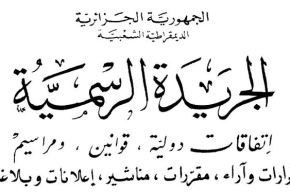 الجمهورية الجزائرية
الديمقراطية الشعبية
الجريدة الرسمية
إتفاقات دولية ، قوانين ، ومراسيم
رارات وآراء ، مقررات ، مناشير ، إعلانات وبلاغ